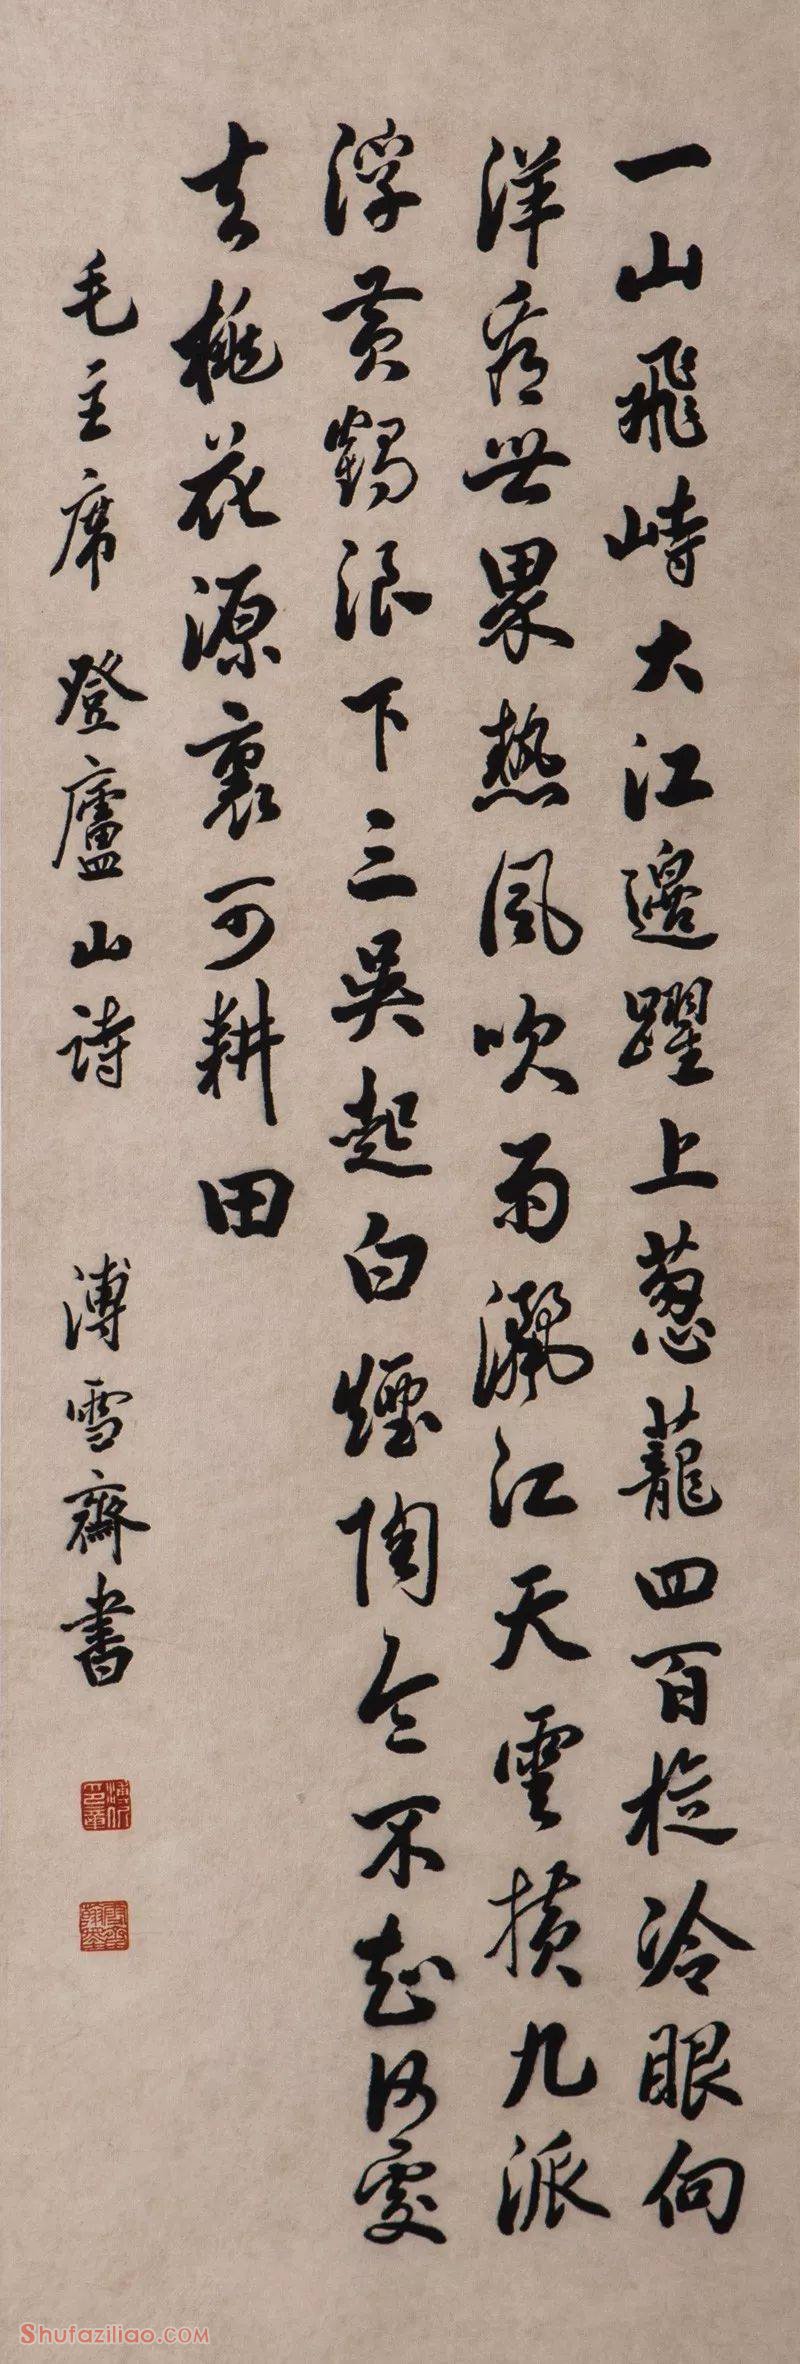 一山飛峙大江邊躍上葱蘢四百旋冷眼向
洋看世界熱風吹雨灑江天雲橫九派
浮黃鶴浪下三吳起白煙陶令不知何處
去桃花源裏可耕田
毛主席 登廬山詩 溥雪齋書
Shufaziliao.COM